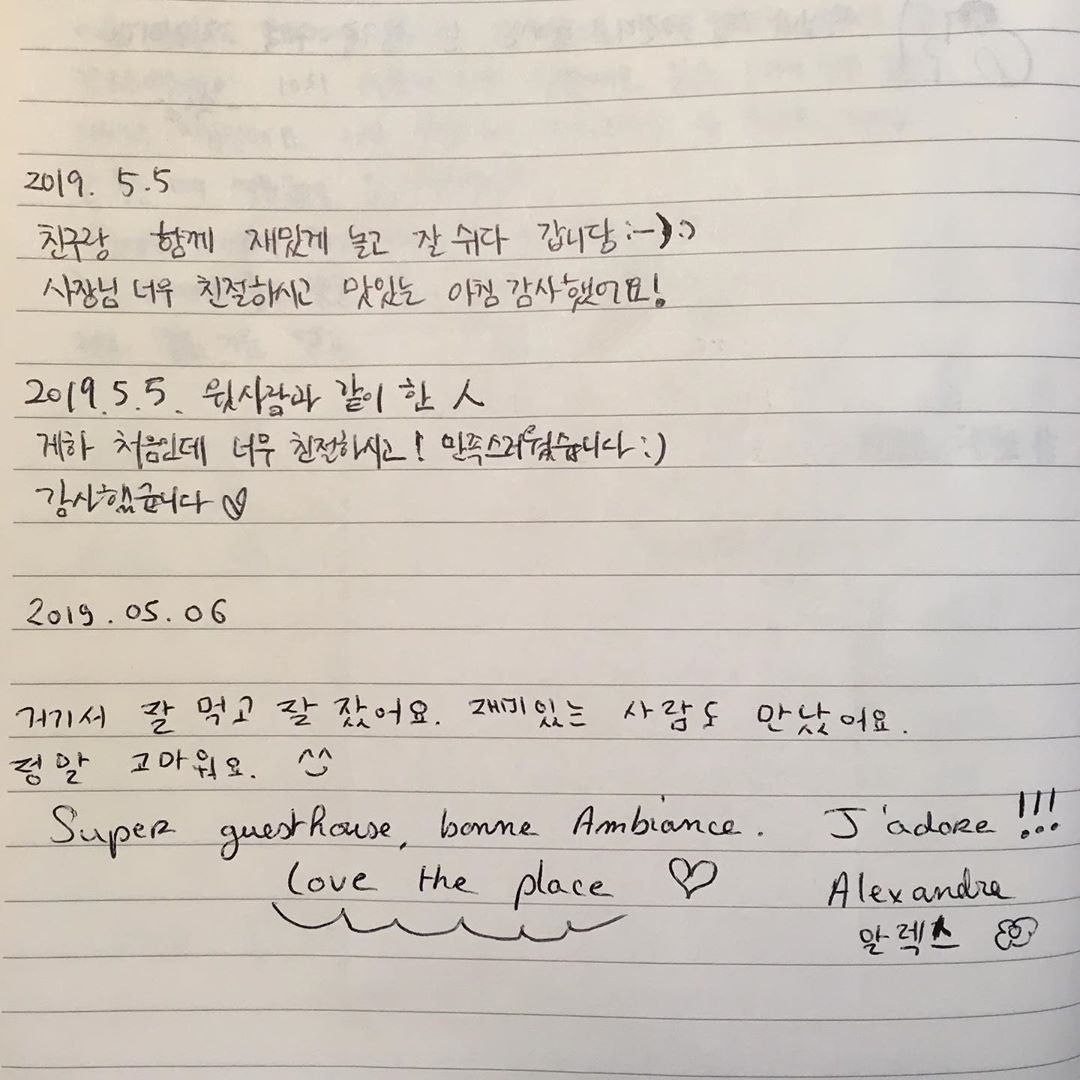 2019. 5.5
친구랑 함께 재밌게 놀고 잘 쉬다 갑니당 :-) :)
사장님 너무 친절하시고 맛있는 아침 감사했어요!
2019.5.5. 윗사람과 같이 한 人
게하 처음인데 너무 친절하시고! 만족스러웠습니다 :)
감사했습니다 ♡
2019.05.06
거기서 잘 먹고 잘 잤어요. 재미있는 사람도 만났어요.
정말 고마워요. ^^
Super guesthouse, bonne Ambiance. J'adore !!!
love the place ♡ Alexandre
알렉스